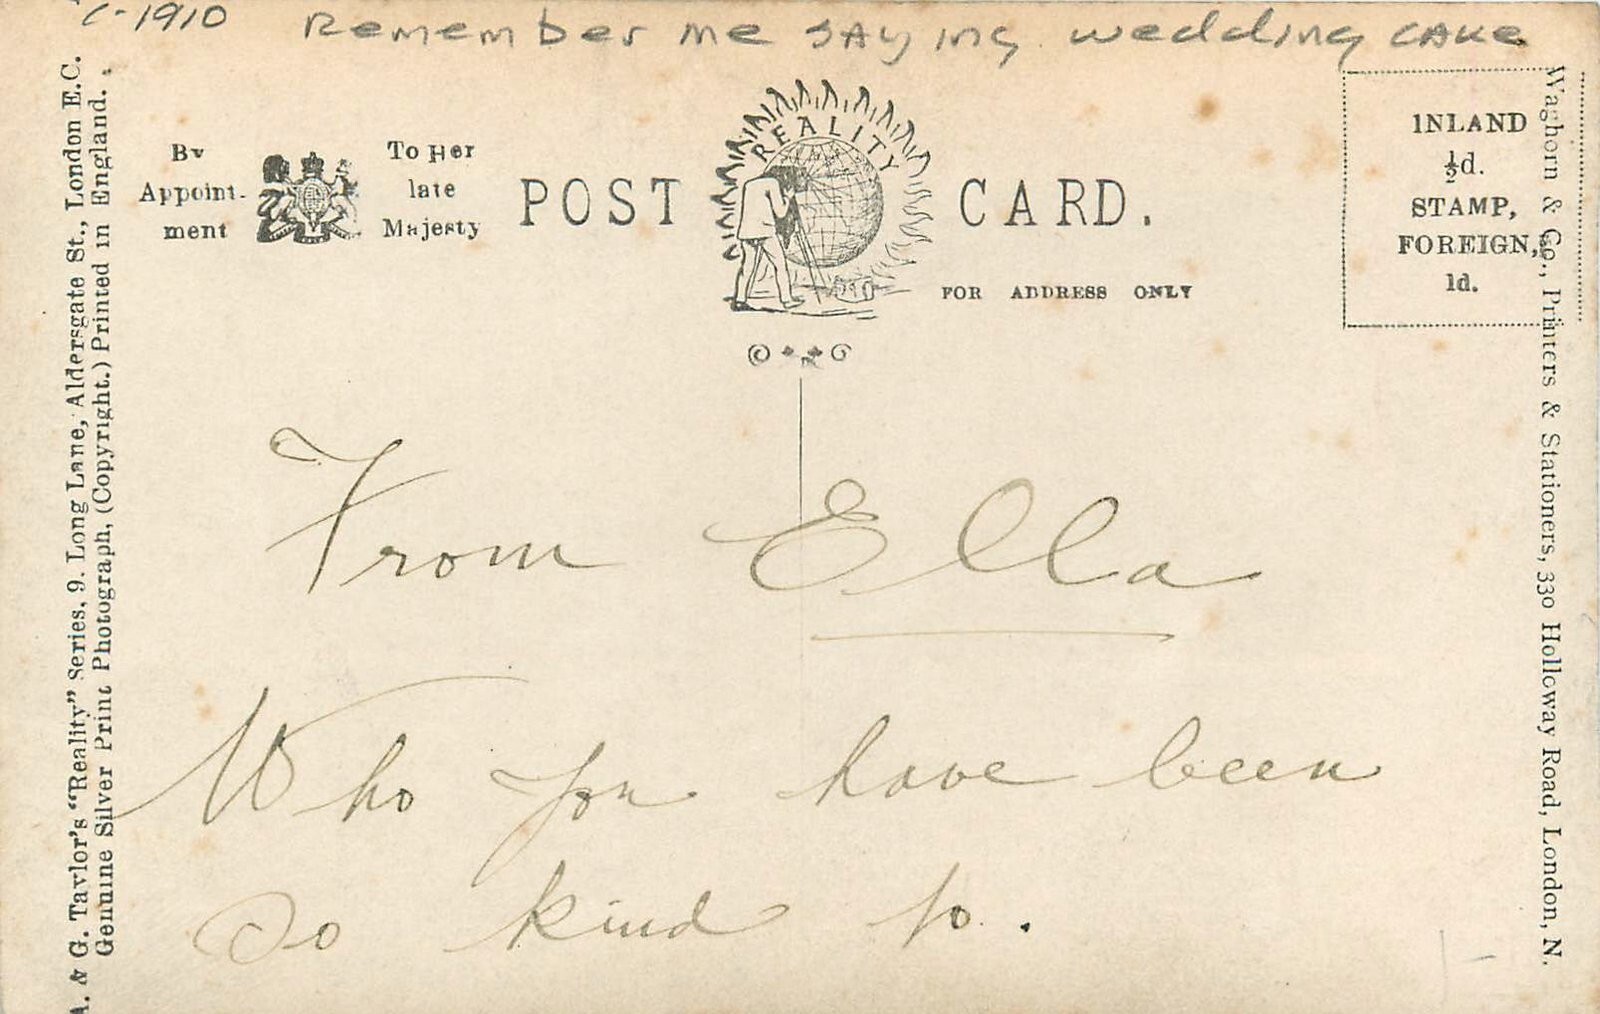 C-1910 Remember me saying wedding cake
By
Appoint-
ment
To Her
late
Majesty
POST CARD.
REALITY
FOR ADDRESS ONLY
INLAND
½d.
STAMP,
FOREIGN,
1d.
From Ella
Who you have been
so kind to.
A. & G. Taylor's "Reality" Series, 9. Long Lane, Aldersgate St., London E.C.
Genuine Silver Print Photograph, (Copyright.) Printed in England.
Waghorn & Co., Printers & Stationers, 330 Holloway Road, London, N.